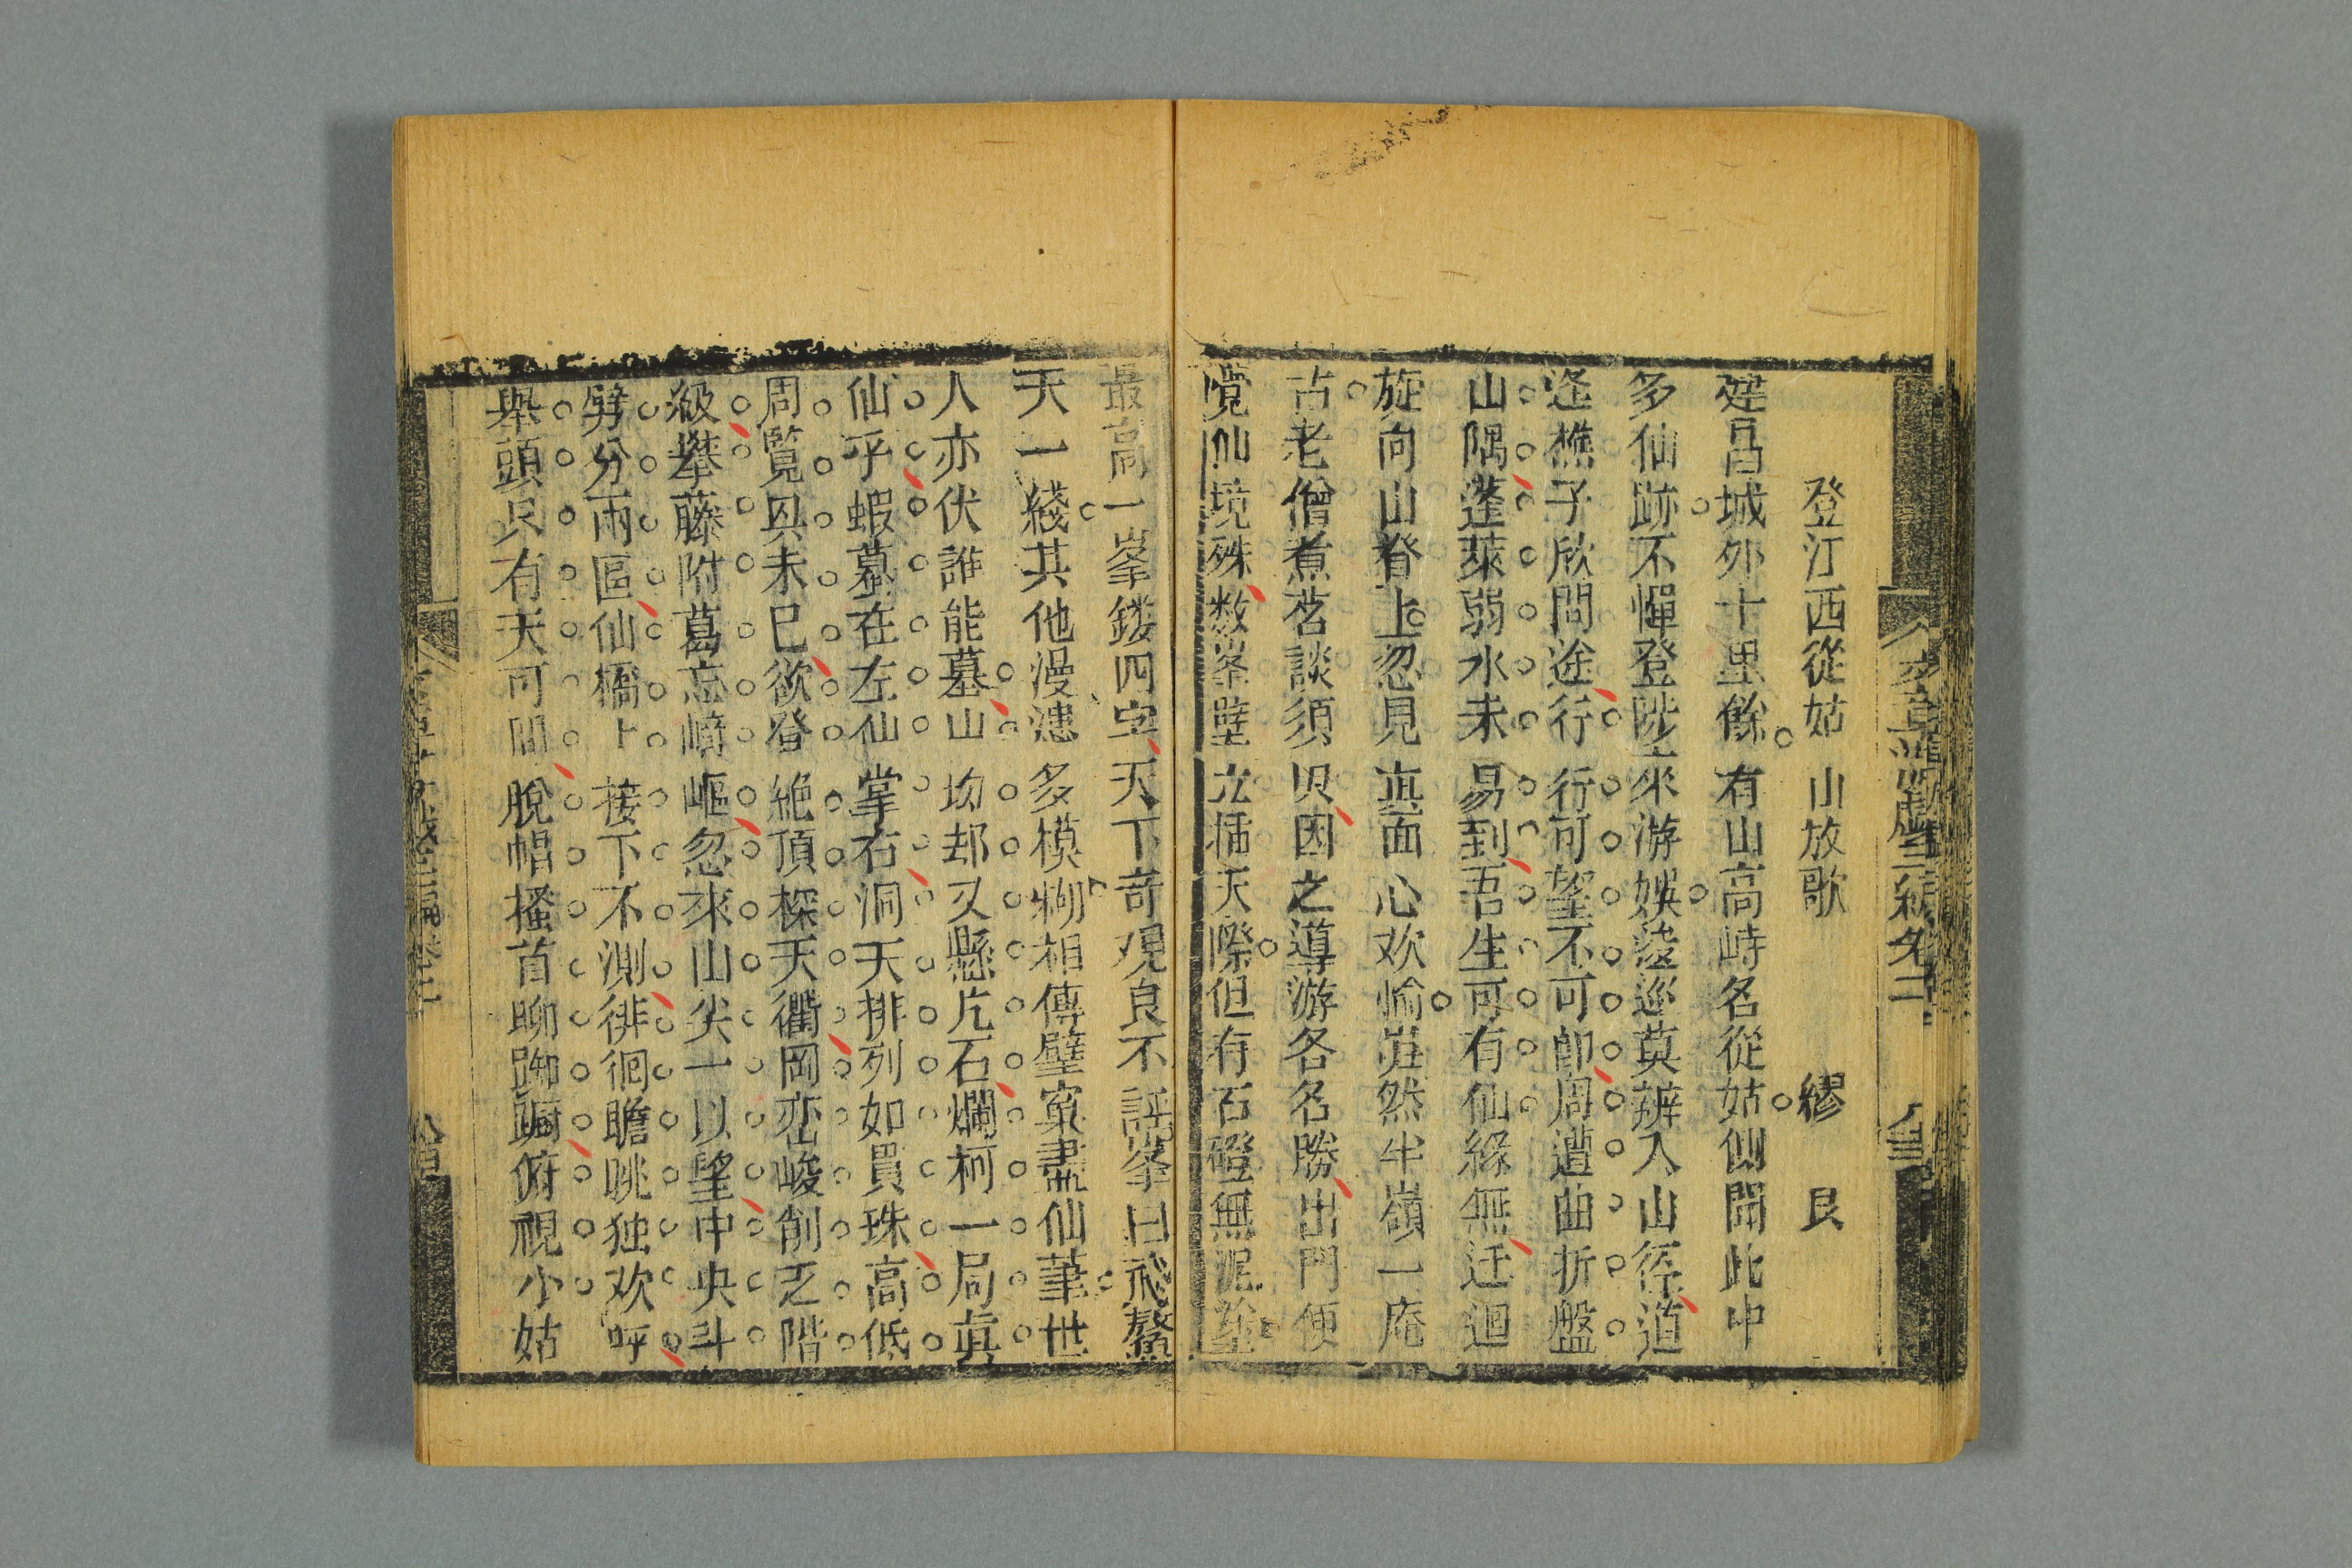 登江西從姑山放歌 繆艮
建昌城外十里餘有山高峙名從姑側聞此中
多仙跡不憚登陟來游娛逡巡莫辨入山徑道
逢樵子欣問途行行可望不可卽周遭曲折盤
山隅蓬萊弱水未易到吾生可有仙緣無迂迴
旋向山脊上忽見真面心欢愉巋然半嶺一庵
古老僧煮茗談須臾因之導游各名勝出門便
覺仙境殊数峯壁立插天際但有石磴無泥塗
最高一峯鏤四字天下奇观良不誣峯曰飛鰲
天一綫其他漫漶多模糊相傳壁窠盡仙筆世
人亦伏誰能摹山坳却又懸片石爛柯一局真
仙乎蝦蟇在左仙掌右洞天排列如貫珠高低
周覧興未已欲登絶頂探天衢岡巒峻削乏階
級攀藤附葛忘崎嶇忽來山尖一以望中央斗
劈分兩區仙橋上接下不測徘徊瞻眺独欢呼
舉頭只有天可問脫帽搔首聊踟蹰俯視小姑